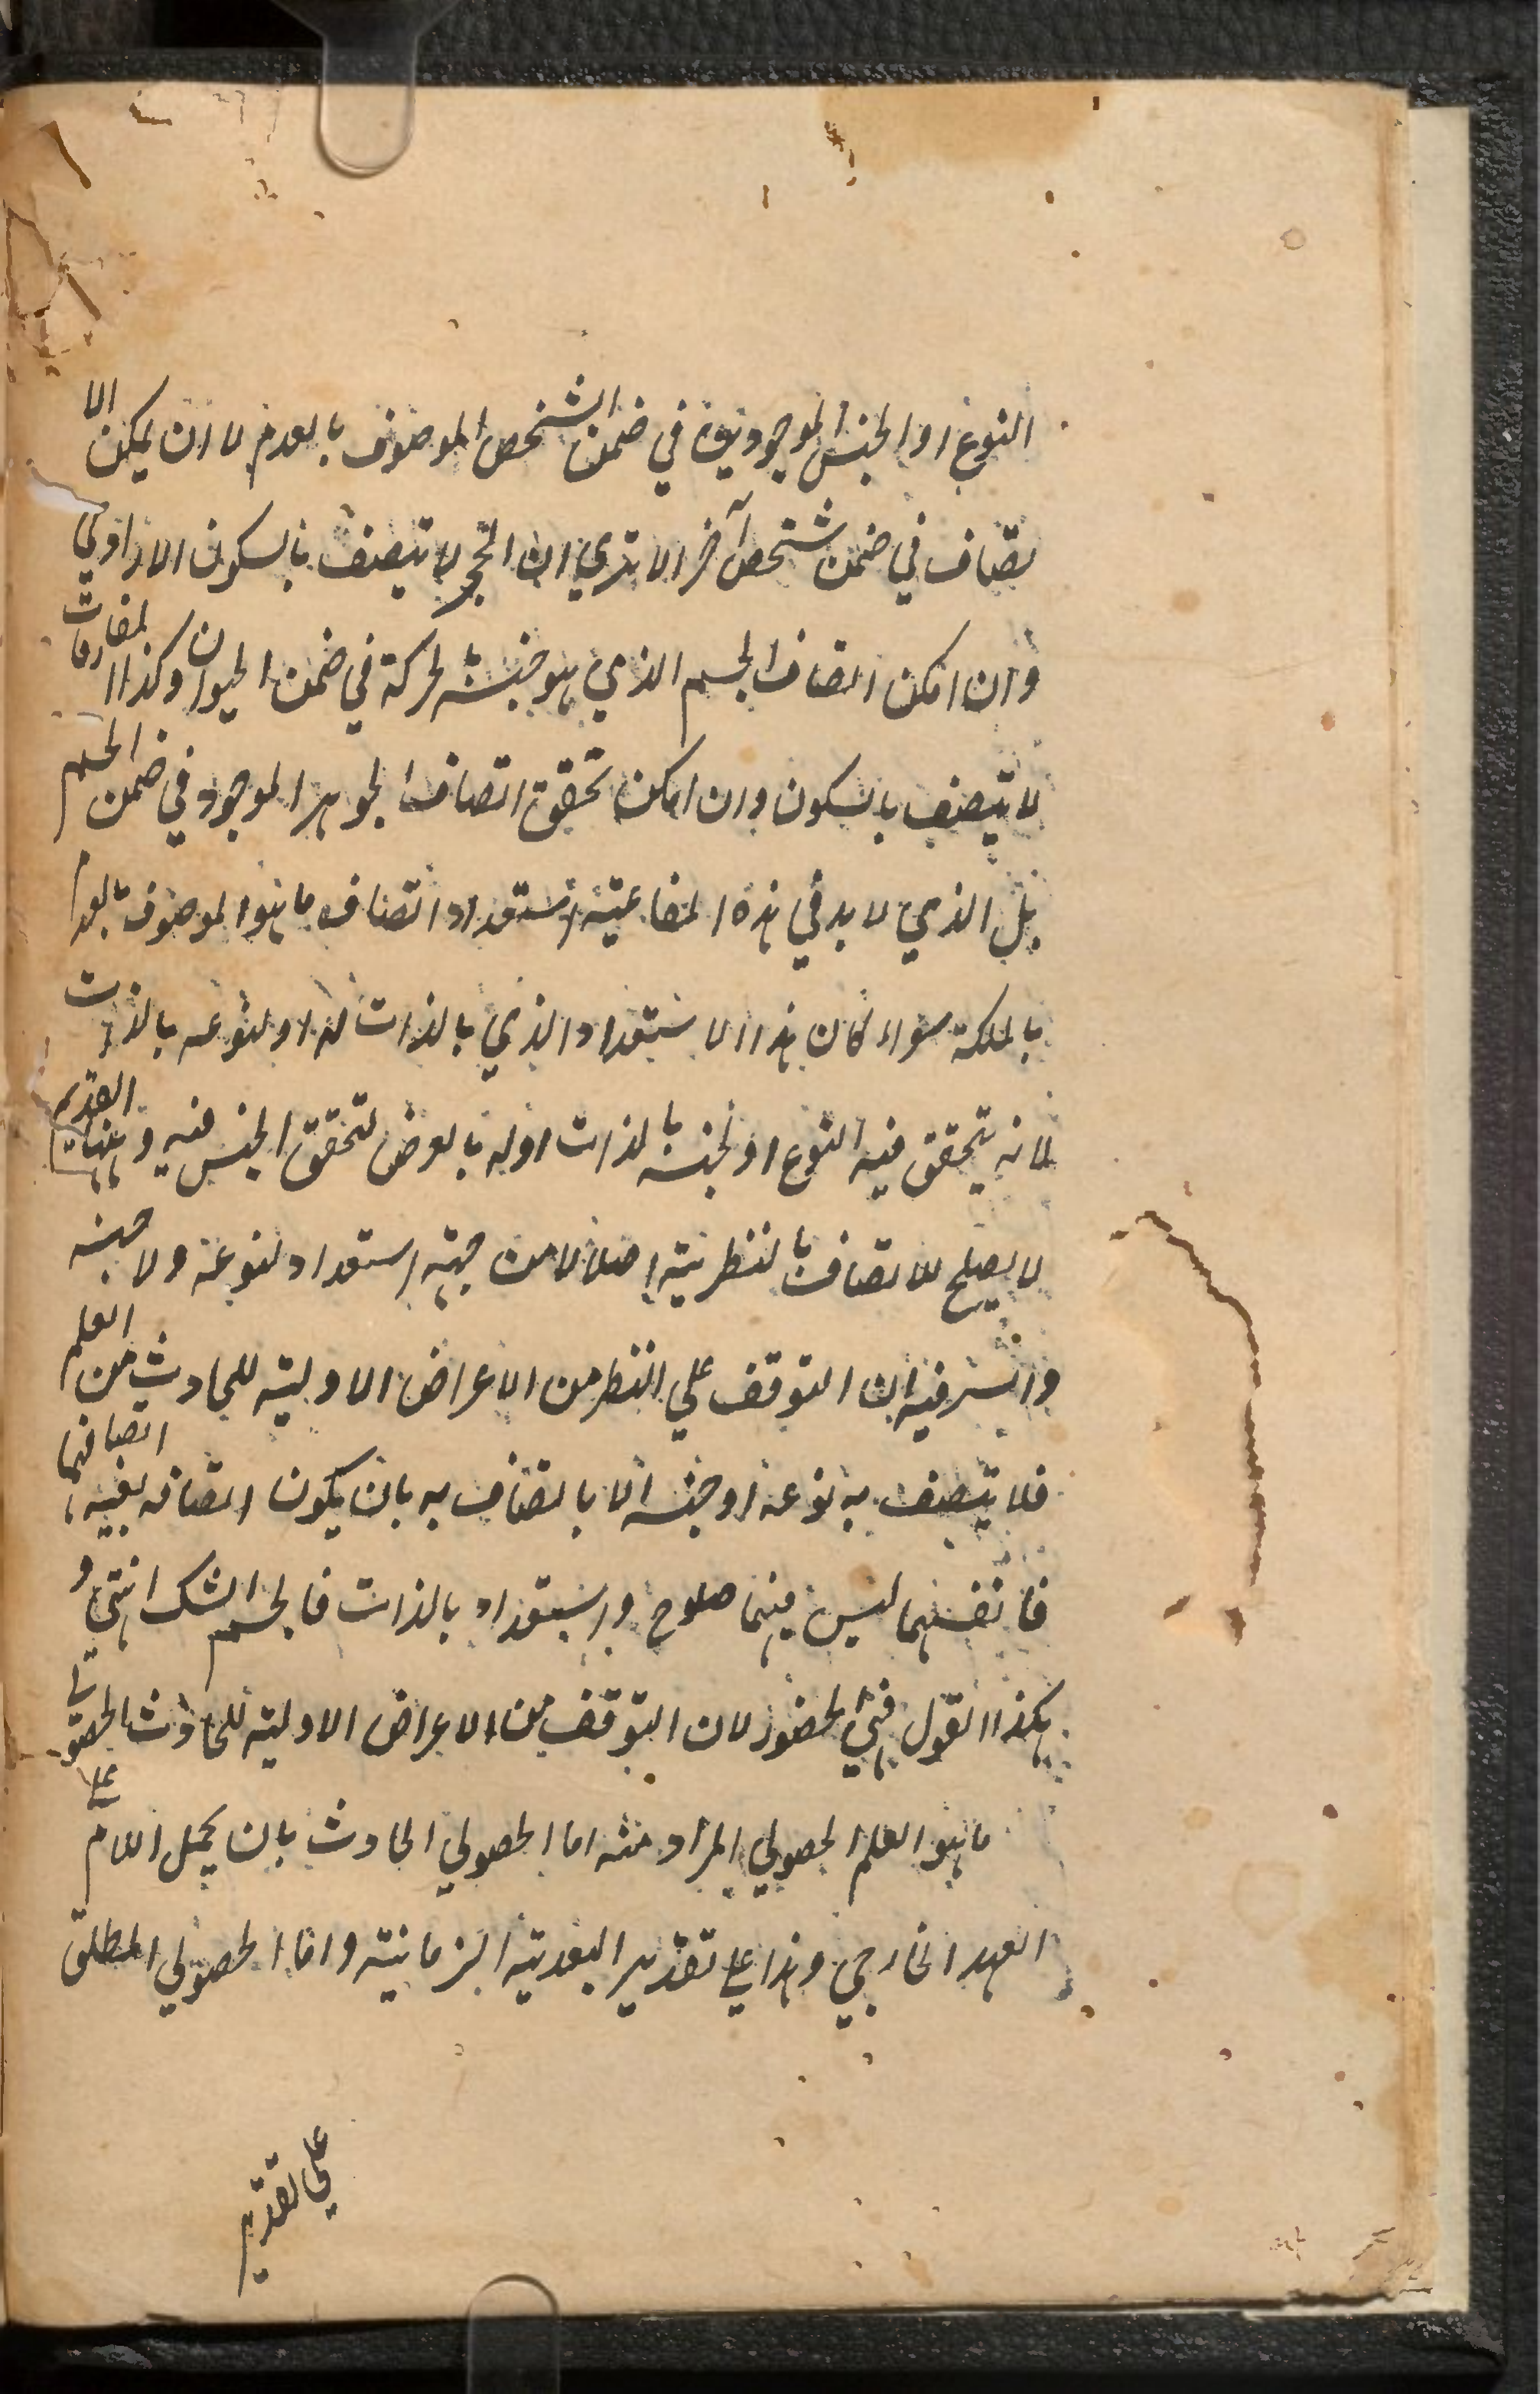 النوع او الجنس الموجودين في ضمن الشخص الموصوف بالعدم لا ان يمكن الا
تصاف في ضمن شخص آخر الا ترى ان الحجر لا يتصف بالسكون الارادي
وان امكن اتصاف الجسم الذي هو جنسه بالحركة في ضمن الحيوان وكذا المفارقات
لا يتصف بالسكون وان امكن تحقق اتصاف الجوهر الموجود في ضمن الجسم
بل الذي لابد في هذه استعداد اتصاف ما هو الموصوف بالعدم
بالملكة سواء كان هذا الاستعداد الذي بالذات له او لنوعه بالذات
لانه يتحقق فيه النوع او لجنسه بالذات اوله بالعرض لتحقق الجنس فيه وههنا القديم
لا يصلح للاتصاف بالنظرية اصلا لا من جهة استعداد لنوعه ولا جنسه
والسر فيه ان التوقف علي النظر من الاعراض الاولية للحادث من العلم
فلا يتصف به نوعه او جنسه الا باتصاف به بان يكون اتصافه بعينه اتصافهما
فانفسهما ليس فيهما صلوح واستعداد بالذات فالجسم الشك انتهى و
هكذا القول في الحضور لان التوقف من الاعراض الاولية للحادث الحصولي
ما هو العلم الحصولي المراد منه اما الحصولي الحادث بان يحمل اللام على
العهد الخارجي وهذا على تقدير البعدية الزمانية واما الحصولي المطلق
علي تقدير